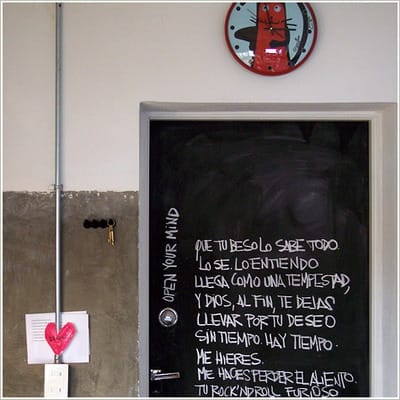 OPEN YOUR MIND
QUE TU BESO LO SABE TODO.
LO SE. LO ENTIENDO
LLEGA COMO UNA TEMPESTAD,
Y DIOS, AL FIN, TE DEJAS
LLEVAR POR TU DESEO
SIN TIEMPO. HAY TIEMPO.
ME HIERES.
ME HACES PERDER EL ALIENTO.
TU ROCK'N'ROLL FURIOSO